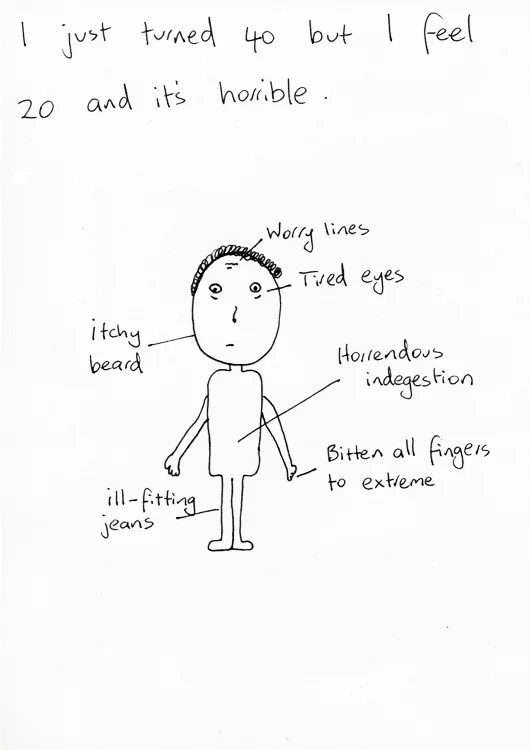 I just turned 40 but I feel
20 and it's horrible.
Worry lines
Tired eyes
itchy
beard
Horrendous
indegestion
Bitten all fingers
to extreme
ill-fitting
jeans